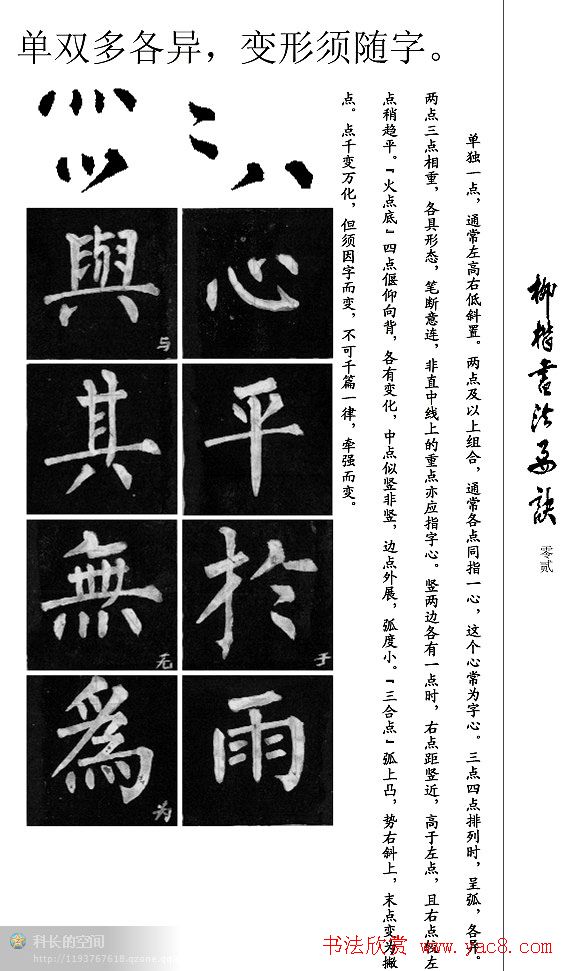 单双多各异，变形须随字。
柳楷書法要訣
零贰
单独一点，通常左高右低斜置。两点及以上组合，通常各点同指一心，这个心常为字心。三点四点排列时，呈弧，各异。
两点三点相重，各具形态，笔断意连，非直中线上的重点亦应指字心。竖两边各有一点时，右点距竖近，高于左点，且右点较左
点稍趋平。『火点底』四点偃仰向背，各有变化，中点似竖非竖，边点外展，弧度小。『三合点』弧上凸，势右斜上，末点变为撇
点。点千变万化，但须因字而变，不可千篇一律，牵强而变。
心
平
於 于
雨
與 与
其
無 无
為 为
科长的空间
http://1193767618.qzone.qq
书法欣赏 www.yac8.com